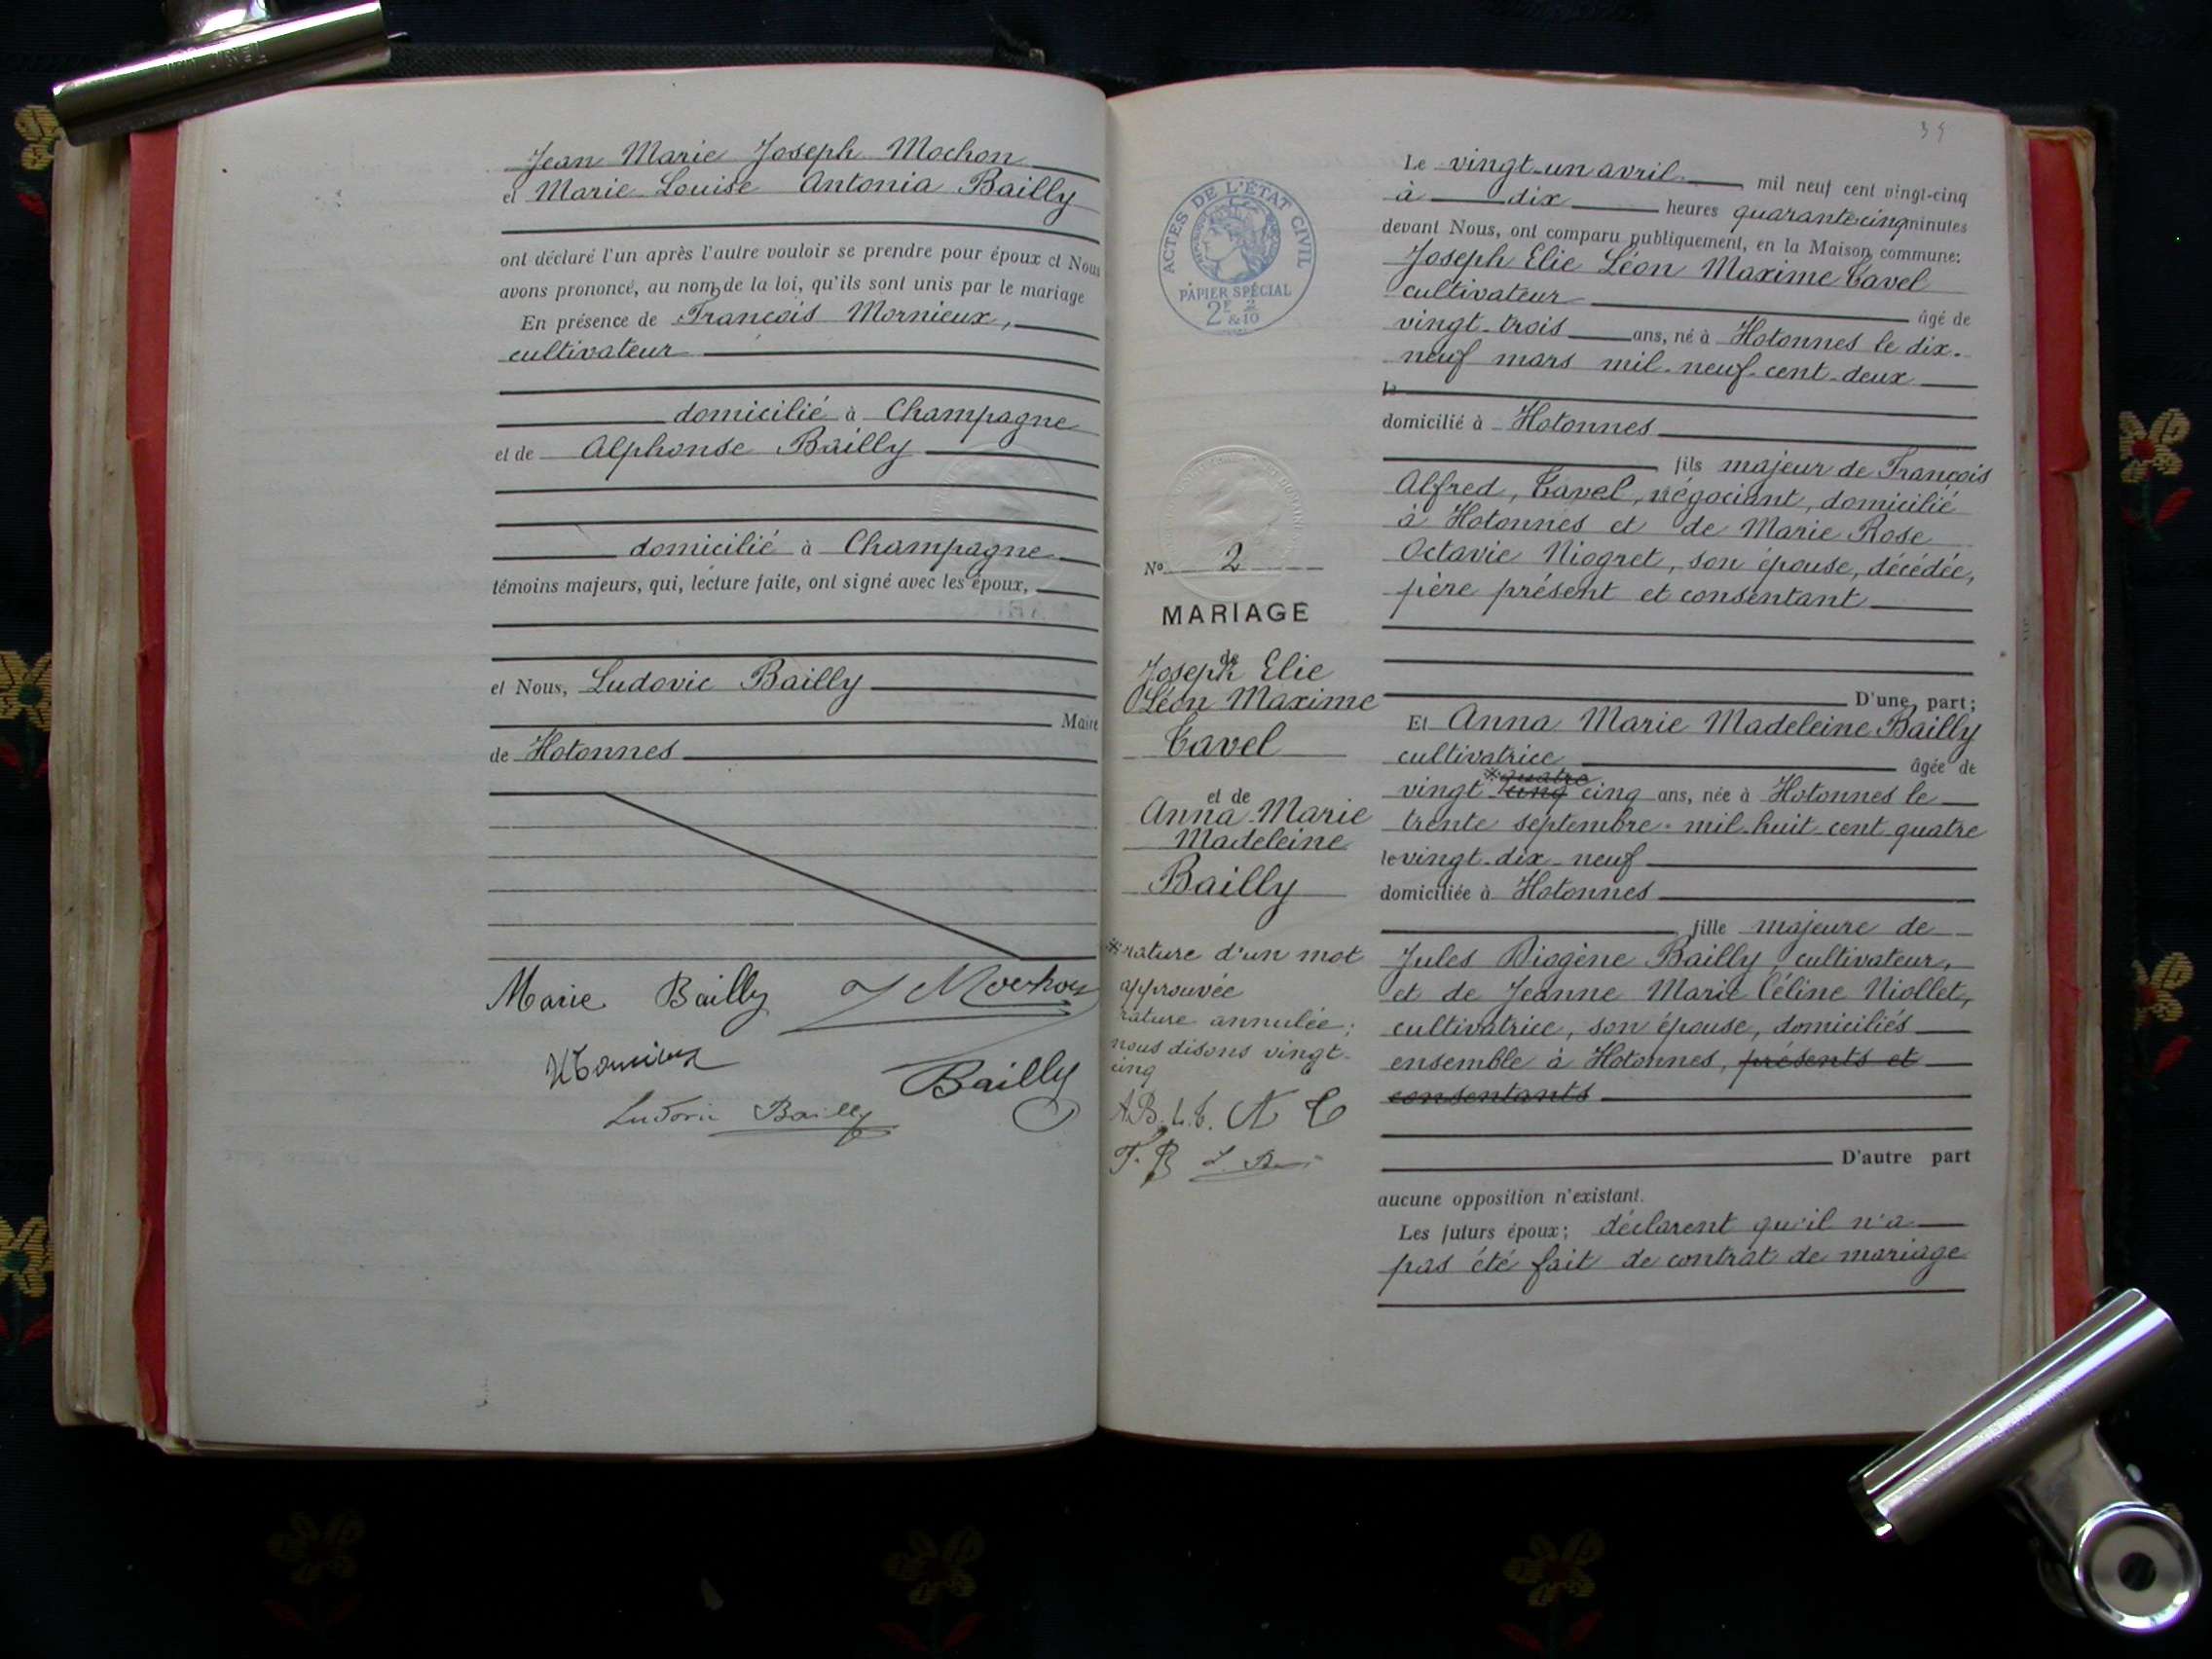 Jean Marie Joseph Mochon
et Marie Louise Antonia Bailly
ont déclaré l'un après l'autre vouloir se prendre pour époux et Nous
avons prononcé, au nom de la loi, qu'ils sont unis par le mariage
En présence de François Mornieux,
cultivateur
domicilié à Champagne
et de Alphonse Bailly
domicilié à Champagne
témoins majeurs, qui, lecture faite, ont signé avec les époux,
et Nous, Ludovic Bailly
Maire
de Hotonnes
Marie Bailly J Mochon
Bailly
Ludovic Bailly
ACTES DE L'ÉTAT CIVIL
PAPIER SPÉCIAL
2F 2
&10
No 2
MARIAGE
de
Joseph Elie
Léon Maxime
Tavel
et de
Anna Marie
Madeleine
Bailly
*rature d'un mot
approuvée
rature annulée;
nous disons vingt-
cinq
A.B. L.T. N T
F. B L. B
Le vingt-un avril mil neuf cent vingt-cinq
à dix heures quarante cinq minutes
devant Nous, ont comparu publiquement, en la Maison commune:
Joseph Elie Léon Maxime Tavel
cultivateur âgé de
vingt-trois ans, né à Hotonnes le dix-
neuf mars mil-neuf-cent-deux
le
domicilié à Hotonnes
fils majeur de François
Alfred, Tavel, négociant, domicilié
à Hotonnes et de Marie Rose
Octavie Niogret, son épouse, décédée,
père présent et consentant
D'une part;
Et Anna Marie Madeleine Bailly
cultivatrice âgée de
*quatre
vingt cinq cinq ans, née à Hotonnes le
trente septembre mil-huit cent quatre
le vingt-dix-neuf
domiciliée à Hotonnes
fille majeure de
Jules Diogène Bailly, cultivateur,
et de Jeanne Marie Céline Niollet,
cultivatrice, son épouse, domiciliés
ensemble à Hotonnes, présents et
consentants
D'autre part
aucune opposition n'existant.
Les futurs époux; déclarent qu'il n'a
pas été fait de contrat de mariage